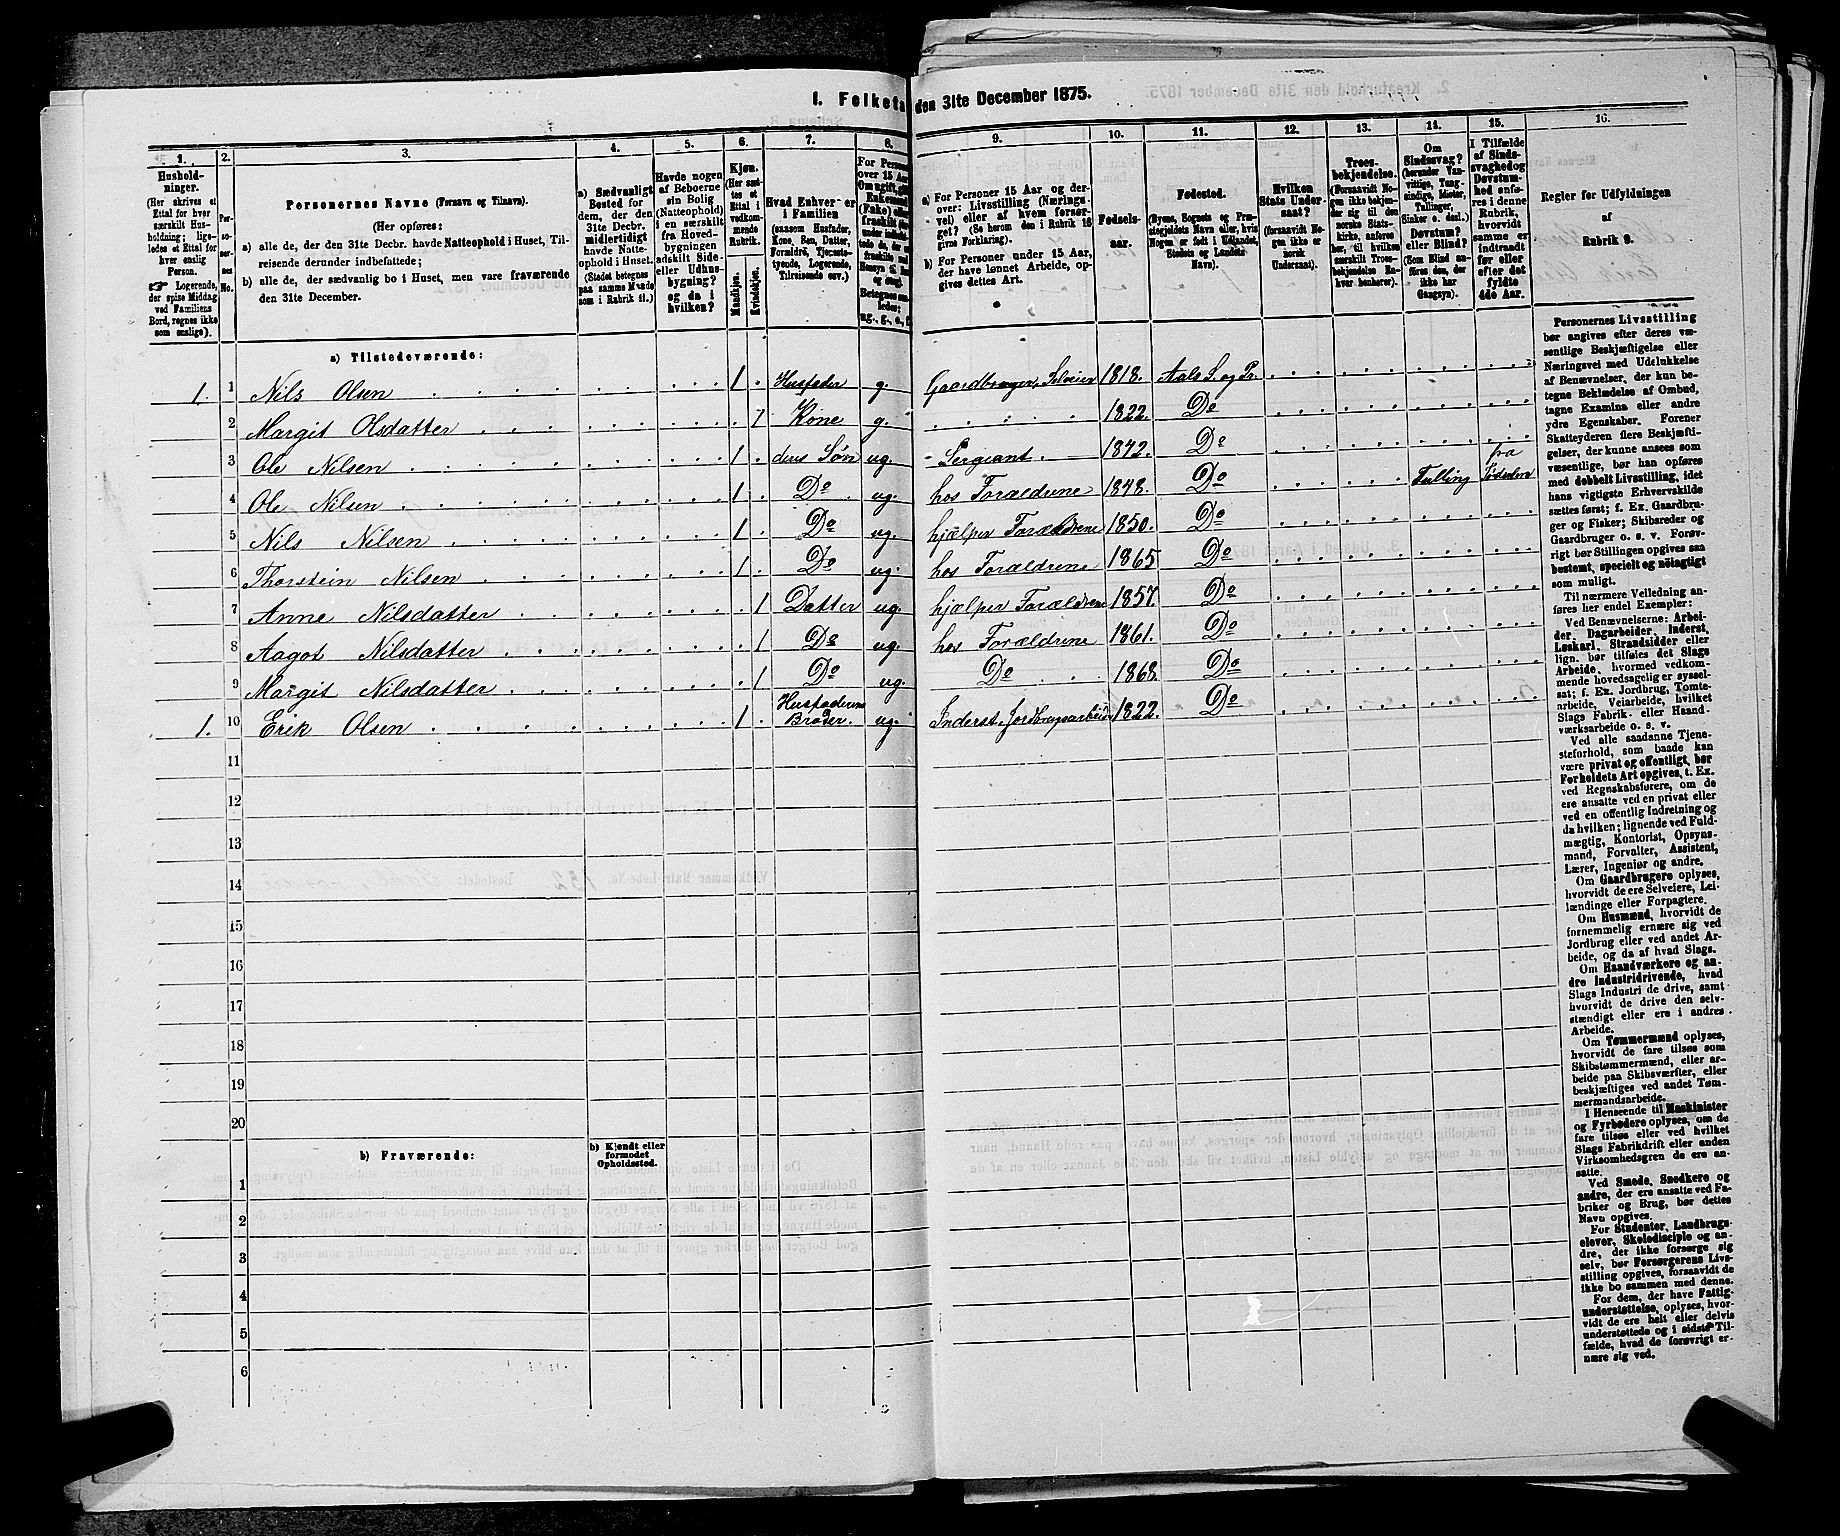 1. Folketa
den 31te December 1875.
1.
Hushold-
ninger.
(Her skrives et
Ettal for hver
særskilt Hus-
holdning; lige-
ledes et Ettal for
hver enslig
Person.
☛ Logerende,
der spise Middag
ved Familiens
Bord, regnes ikke
som enslige).
2.
Per-
so-
ner-
nes
No.
3.
Personernes Navne (Fornavn og Tilnavn).
(Her opføres:
a) alle de, der den 31te Decbr. havde Natteophold i Huset, Til-
reisende derunder indbefattede;
b) alle de, der sædvanlig bo i Huset, men vare fraværende
den 31te December.
4.
a) Sædvanligt
Bosted for
dem, der den
31te Decbr.
midlertidigt
havde Natte-
ophold i Huset.
(Stedet betegnes
paa samme Maade
som i Rubrik 11.)
5.
Havde nogen
af Beboerne
sin Bolig
(Natteophold)
i en særskilt
fra Hoved-
bygningen
adskilt Side-
eller Udhus-
bygning?
og da i
hvilken?
6.
Kjøn.
(Her sæt-
tes et
Ettal i
vedkom-
mende
Rubrik.
Mandkjøn.
Kvindekjøn.
7.
Hvad Enhver er
i Familien
(saasom Husfader,
Kone, Søn, Datter,
Forældre, Tjenestetyende, Logerende,
Tilreisende osv.)
8.
For Person
over 15 Aar
9.
a) For Personer 15 Aar og der-
over: Livsstilling (Nærings-
vei) eller af hvem forsør-
get? (Se herom den i Rubrik 16
givne Forklaring).
b) For Personer under 15 Aar,
der have lønnet Arbeide, op-
gives dettes Art.
10.
Fødsels-
aar.
11.
Fødested.
(Byens, Sognets og Præ-
stegjeldets Navn eller, hvis
Nogen er født i Udlandet,
Stedets og Landets
Navn).
12.
Hvilken
Stats Under-
saat?
(forsaavidt No-
gen ikke er
norsk
Undersaat).
13.
Troes-
bekjendelse.
(Forsaavidt No-
gen ikke bekjen-
der sig til den
norske Stats-
kirke, anføres
her, til hvilken
særskilt Troes-
bekjendelse En-
hver henhører).
14.
Om
Sindssvag?
(herunder Van-
vittige, Tung-
sindige, Idioter,
Tullinger,
Sinker o. desl.)
Døvstum?
eller Blind?
(Som Blind an-
føres den, der
ikke har
Gangsyn).
15.
I Tilfælde
af Sinds-
svaghed og
Døvstum-
hed anfø-
res i denne
Rubrik,
hvorvidt
samme er
indtraadt
før eller
efter det
fyldte
4de Aar.
16.
Regler for Udfyldningen
af
Rubrik 9.
a) Tilstedeværende:
1. 1 Nils Olsen 1 Husfader g. Gaardbruger, Selveier 1818. Aals S. og Pr.
2 Margit Olsdatter 1 Kone g. 1822. Do
3 Ole Nilsen 1 deres Søn ug. Sergeant 1842. Do
4 Ole Nilsen 1 Do ug. hos Forældrene 1848. Do Tulling fra Fødselen
5 Nils Nilsen 1 Do ug. hjælper Forældrene 1850. Do
6 Thorstein Nilsen 1 Do ug. hos Forældrene 1865 Do
7 Anne Nilsdatter 1 Datter ug. hjælper Forældrene 1857. Do
8 Aagot Nilsdatter 1 Do ug. hos Forældrene 1861. Do
9 Margit Nilsdatter 1 Do ug. Do 1868 Do
1. 10 Erik Olsen 1 Husfaderens Broder. ug. Inderst, Jordbrugsarbeide 1822. Do
11
12
13
14
15
16
17
18
19
20
b) Fraværende:
b) Kjendt eller
formodet
Opholdssted.
1
2
3
4
5
6
Personernes Livsstilling
bør angives efter deres væ-
sentlige Beskjæftigelse eller
Næringsvei med Udelukkelse
af Benævnelser, der kun be-
tegne Beklædelse af Ombud,
tagne Examina eller andre
ydre Egenskaber. Forener
Skatteyderen flere Beskjæfti-
gelser, der kunne ansees som
væsentlige, bør han opføres
med dobbelt Livsstilling, idet
hans vigtigste Erhvervskilde
sættes først; f. Ex. Gaardbru-
ger og Fisker; Skibsreder og
Gaardbruger o. s. v. Forøv-
rigt bør Stillingen opgives saa
bestemt, specielt og nøiagtigt
som muligt.
Til nærmere Veiledning an-
føres her endel Exempler:
Ved Benævnelserne: Arbei-
der, Dagarbeider, Inderst,
Løskarl, Strandsidder eller
lign. bør tilføies det Slags
Arbeide, hvormed vedkom-
mende hovedsagelig er syssel-
sat; f. Ex. Jordbrug, Tomte-
arbeide, Veiarbeide, hvilket
Slags Fabrik- eller Haand-
værksarbeide o. s. v.
Ved alle saadanne Tjene-
steforhold, som baade kan
være privat og offentligt, bør
Forholdets Art opgives, t. Ex.
ved Regnskabsførere, om de
ere ansatte ved en privat eller
ved en offentlig Indretning og
da hvilken; lignende ved Fuld-
mægtig, Kontorist, Opsyns-
mand, Forvalter, Assistent,
Lærer, Ingeniør og andre.
Om Gaardbrugere oplyses,
hvorvidt de ere Selveiere, Lei-
lændinge eller Forpagtere.
Om Husmænd, hvorvidt de
fornemmelig ernære sig ved
Jordbrug eller ved andet Ar-
beide, og da af hvad Slags.
Om Haandværkere og an-
dre Industridrivende, hvad
Slags Industri de drive, samt
hvorvidt de drive den selv-
stændigt eller ere i andres
Arbeide.
Om Tømmermænd oplyses,
hvorvidt de fare tilsøs som
Skibstømmermænd, eller ar-
beide paa Skibsværfter, eller
beskjæftiges ved andet Tøm-
mermandsarbeide.
I Henseende til Maskinister
og Fyrbødere oplyses, om de
fare tilsøs eller ved hvilket
Slags Fabrikdrift eller anden
Virksomhedsgren de ere an-
satte.
Ved Smede, Snedkere og
andre, der ere ansatte ved Fa-
briker og Brug, bør dettes
Navn opgives.
For Studenter, Landbrugs-
elever, Skoledisciple og an-
dre, der ikke forsørge sig
selv, bør Forsørgerens Livs-
stilling opgives, forsaavidt de
ikke bo sammen med denne.
For dem, der have Fattig-
understøttelse, oplyses, hvor-
vidt de ere helt eller delvis
understøttede og i sidste Til-
fælde, hvad de forøvrigt er-
nære sig ved.